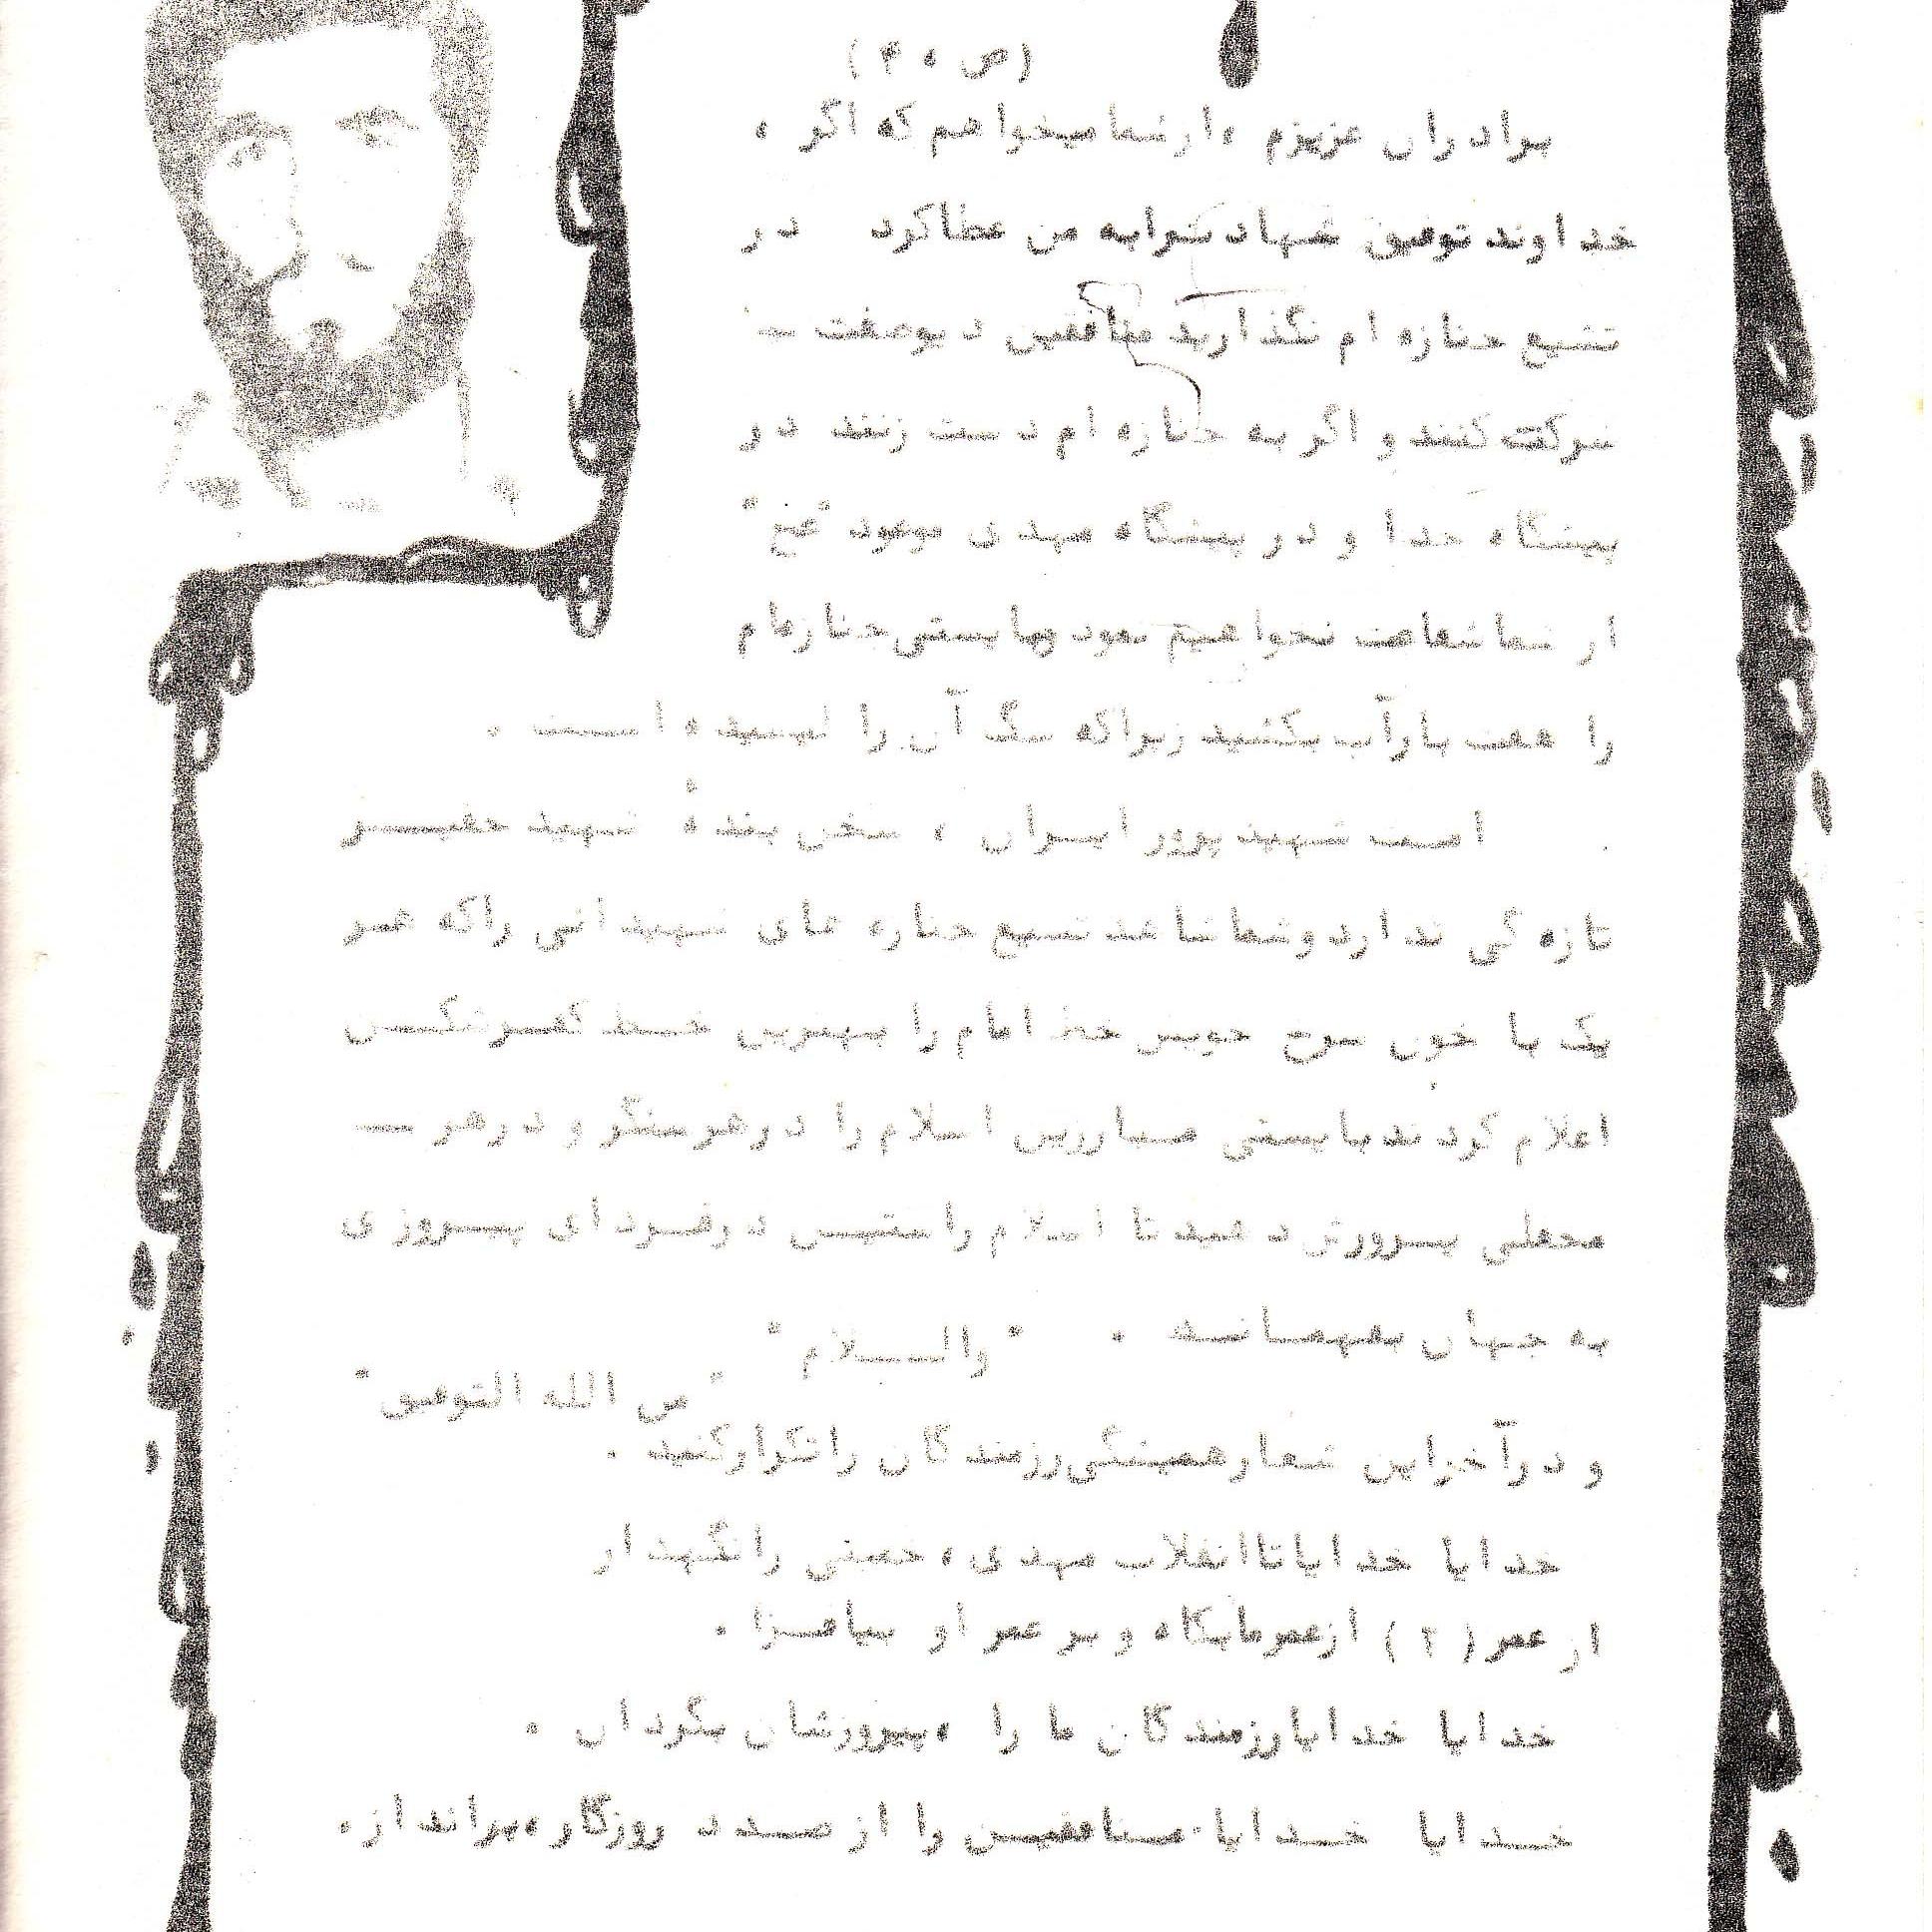 (ص ۴۰)
برادران عزیزم ،از شما میخواهم که اگر ،
خداوند توفیق شهادت را به من عطا کرد در
تشیع جنازه ام نگذارید منافقین دیوصفت —
شرکت کنند و اگر به جنازه ام دست زنند در
پیشگاه خدا و در پیشگاه مهدی موعود "عج"
از شما شفاعت نخواهیم نمود وبایستی جنازه‌ام
را هفت بار آب بکشید زیرا که سگ آن را لیسیده است .
امت شهید پرور ایران ، سخن بندهٔ شهید حقیر
تازه گی ندارد و شما شاهد تشیع جنازه های شهیدانی را که هر
یک با خون سرخ خویش خط امام را بهترین خط کفرشکن
اعلام کردند بایستی مبارزین اسلام را در هر سنگر و در هر —
محفلی پرورش دهید تا اسلام راستین در فردای پیروزی
به جهان بفهمانند .
"والسلام"
"من الله التوفیق"
و در آخر این شعار همیشگی رزمندگان را تکرار کنید .
خدایا خدایا تا انقلاب مهدی ، خمینی را نگهدار
از عمر (۲) از عمر ما بکاه و بر عمر او بیافزا .
خدایا خدایا رزمندگان ما را ،پیروزشان بگردان .
خدایا خدایا منافقین را از صدد روزگار ،برانداز .